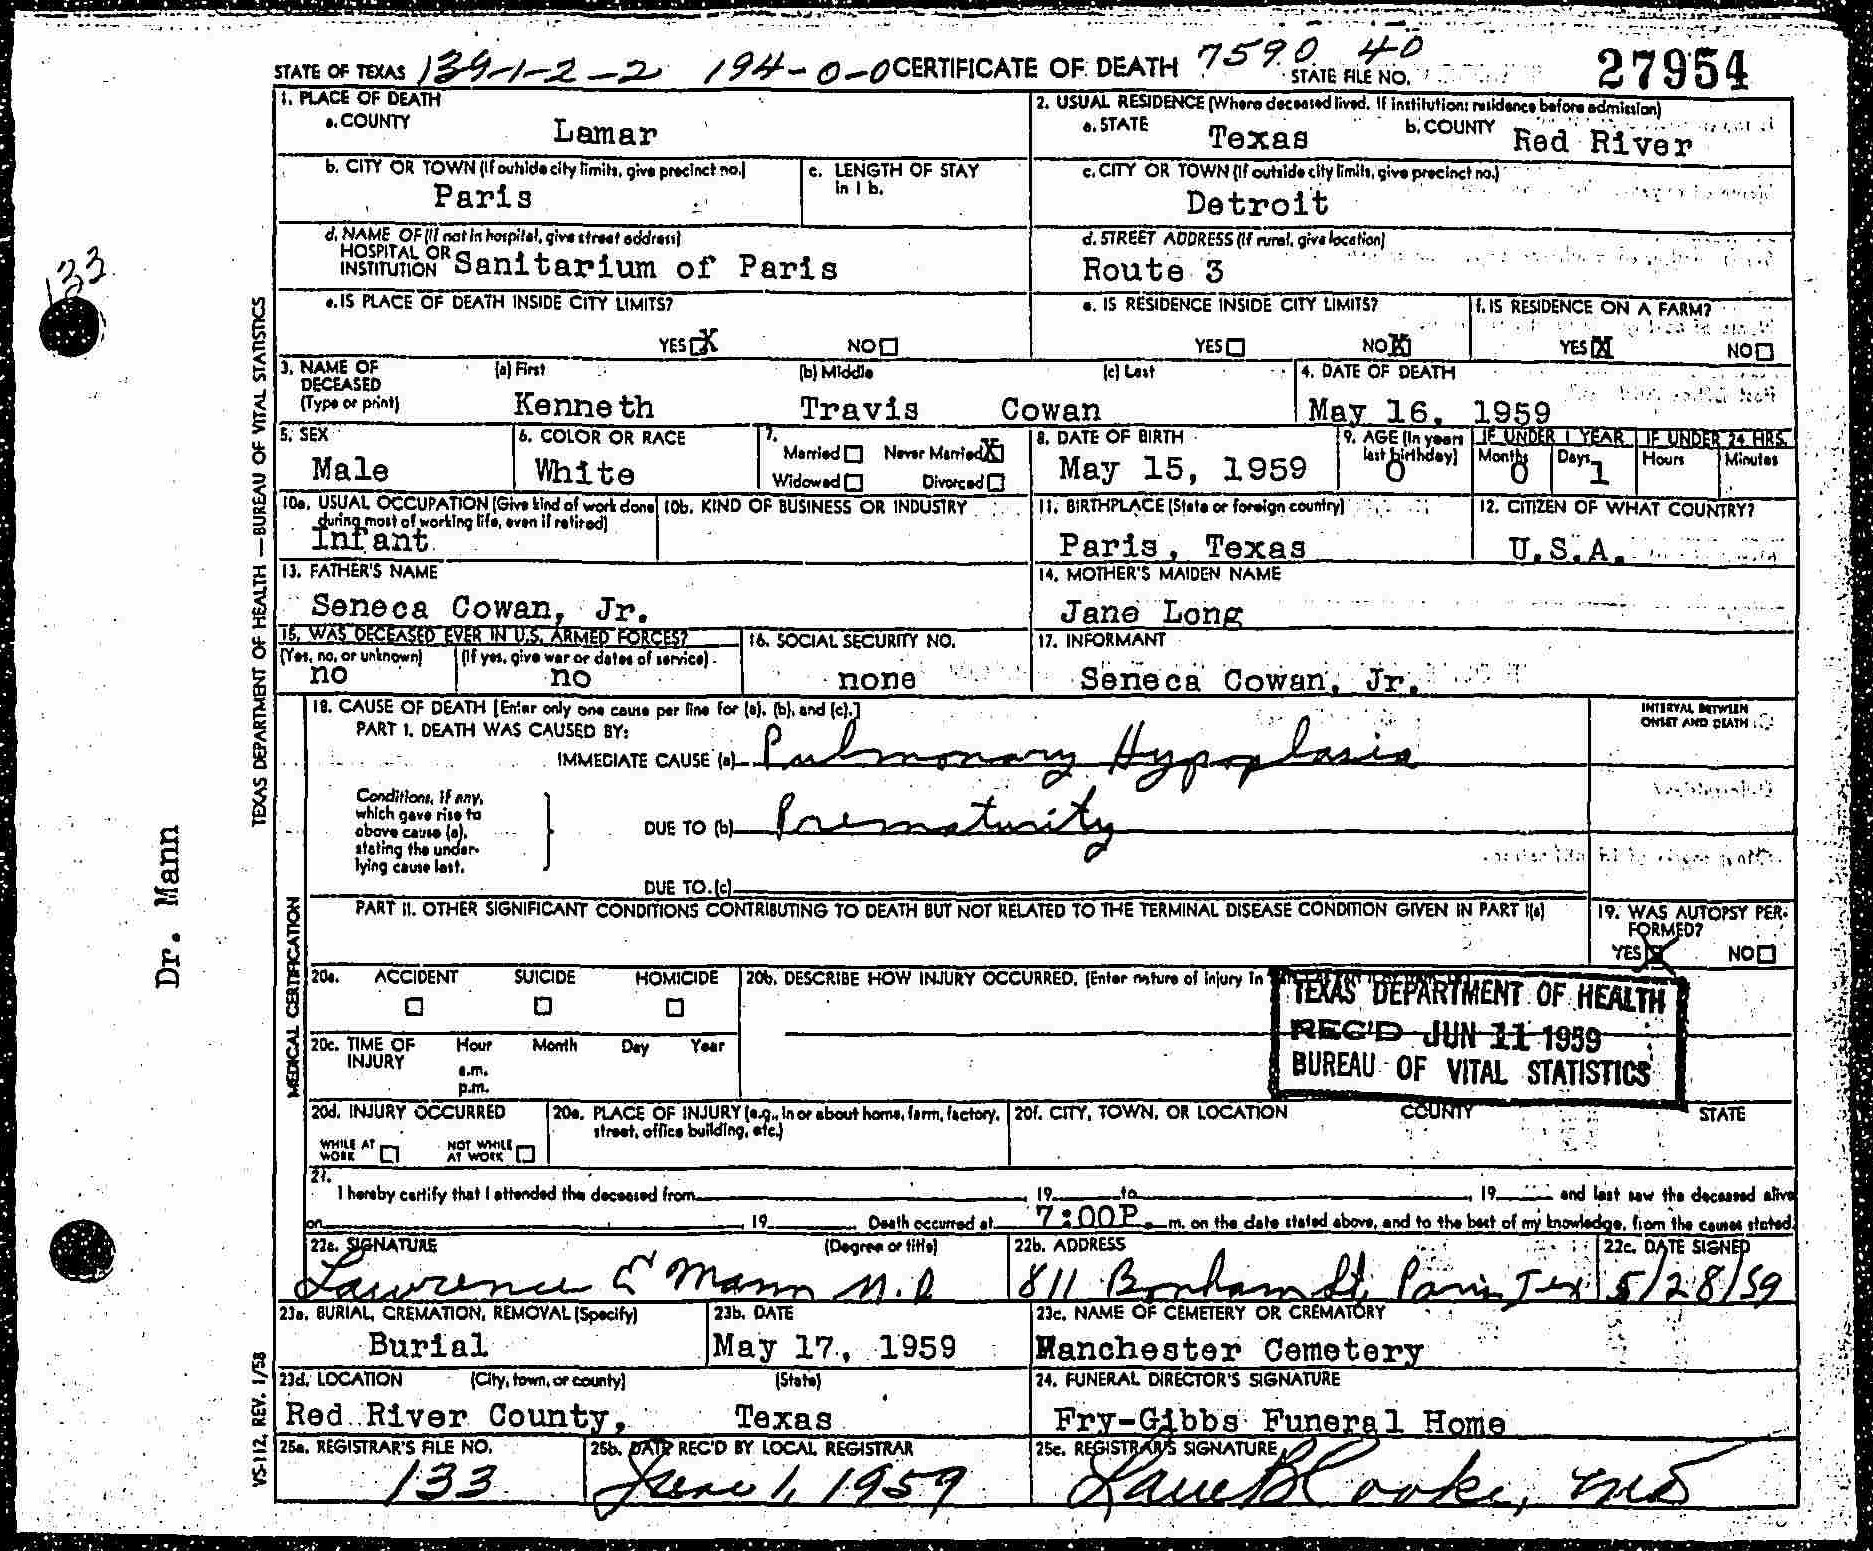 STATE OF TEXAS 139-1-2-2 194-0-0 CERTIFICATE OF DEATH 7590 40 STATE FILE NO. 27954
1. PLACE OF DEATH
a. COUNTY Lamar
2. USUAL RESIDENCE (Where deceased lived. If institution: residence before admission)
a. STATE Texas b. COUNTY Red River
b. CITY OR TOWN (If outside city limits, give precinct no.) Paris
c. LENGTH OF STAY in 1 b.
c. CITY OR TOWN (If outside city limits, give precinct no.) Detroit
d. NAME OF (If not in hospital, give street address)
HOSPITAL OR
INSTITUTION Sanitarium of Paris
d. STREET ADDRESS (If rural, give location)
Route 3
e. IS PLACE OF DEATH INSIDE CITY LIMITS?
YES X NO
e. IS RESIDENCE INSIDE CITY LIMITS?
YES NO X
f. IS RESIDENCE ON A FARM?
YES X NO
3. NAME OF DECEASED (Type or print)
(a) First (b) Middle (c) Last
Kenneth Travis Cowan
4. DATE OF DEATH
May 16, 1959
5. SEX
Male
6. COLOR OR RACE
White
7. Married Never Married X
Widowed Divorced
8. DATE OF BIRTH
May 15, 1959
9. AGE (In years last birthday)
0
IF UNDER 1 YEAR
Months 0 Days 1
IF UNDER 24 HRS.
Hours Minutes
10a. USUAL OCCUPATION (Give kind of work done
during most of working life, even if retired)
Infant
10b. KIND OF BUSINESS OR INDUSTRY
11. BIRTHPLACE (State or foreign country)
Paris, Texas
12. CITIZEN OF WHAT COUNTRY?
U.S.A.
13. FATHER'S NAME
Seneca Cowan, Jr.
14. MOTHER'S MAIDEN NAME
Jane Long
15. WAS DECEASED EVER IN U.S. ARMED FORCES?
(Yes, no, or unknown) (If yes, give war or dates of service)
no no
16. SOCIAL SECURITY NO.
none
17. INFORMANT
Seneca Cowan, Jr.
18. CAUSE OF DEATH [Enter only one cause per line for (a), (b), and (c).]
INTERVAL BETWEEN
ONSET AND DEATH
PART I. DEATH WAS CAUSED BY:
IMMEDIATE CAUSE (a) Pulmonary Hypoplasia
Conditions, if any,
which gave rise to
above cause (a),
stating the under-
lying cause last.
DUE TO (b) Prematurity
DUE TO (c)
PART II. OTHER SIGNIFICANT CONDITIONS CONTRIBUTING TO DEATH BUT NOT RELATED TO THE TERMINAL DISEASE CONDITION GIVEN IN PART I(a)
19. WAS AUTOPSY PER-
FORMED?
YES X NO
20a. ACCIDENT SUICIDE HOMICIDE
20b. DESCRIBE HOW INJURY OCCURRED. (Enter nature of injury in
TEXAS DEPARTMENT OF HEALTH
REC'D JUN 11 1959
BUREAU OF VITAL STATISTICS
20c. TIME OF INJURY Hour Month Day Year
a.m.
p.m.
20d. INJURY OCCURRED
WHILE AT WORK NOT WHILE AT WORK
20e. PLACE OF INJURY (e.g., in or about home, farm, factory,
street, office building, etc.)
20f. CITY, TOWN, OR LOCATION COUNTY STATE
21.
I hereby certify that I attended the deceased from 19 to , 19 and last saw the deceased alive
on , 19 Death occurred at 7:00P. m. on the date stated above, and to the best of my knowledge, from the causes stated.
22a. SIGNATURE (Degree or title)
Lawrence E Mann M.D
22b. ADDRESS
811 Bonham St, Paris, Tex
22c. DATE SIGNED
5/28/59
23a. BURIAL, CREMATION, REMOVAL (Specify)
Burial
23b. DATE
May 17, 1959
23c. NAME OF CEMETERY OR CREMATORY
Manchester Cemetery
23d. LOCATION (City, town, or county) (State)
Red River County, Texas
24. FUNERAL DIRECTOR'S SIGNATURE
Fry-Gibbs Funeral Home
25a. REGISTRAR'S FILE NO.
133
25b. DATE REC'D BY LOCAL REGISTRAR
June 1, 1959
25c. REGISTRAR'S SIGNATURE
133
Dr. Mann
TEXAS DEPARTMENT OF HEALTH — BUREAU OF VITAL STATISTICS
MEDICAL CERTIFICATION
VS-112, REV. 1/58